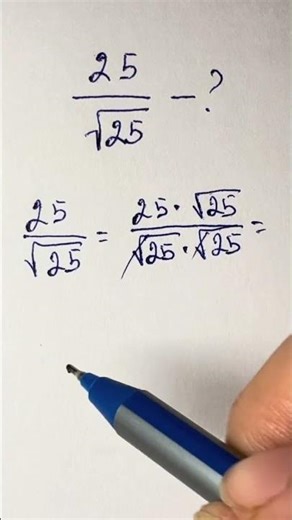 25/√25 - ?
25/√25 = 25·√25/√25·√25 =